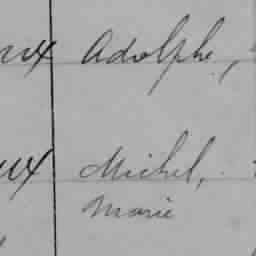 ux Adolphe,
ux Michel,
Marie